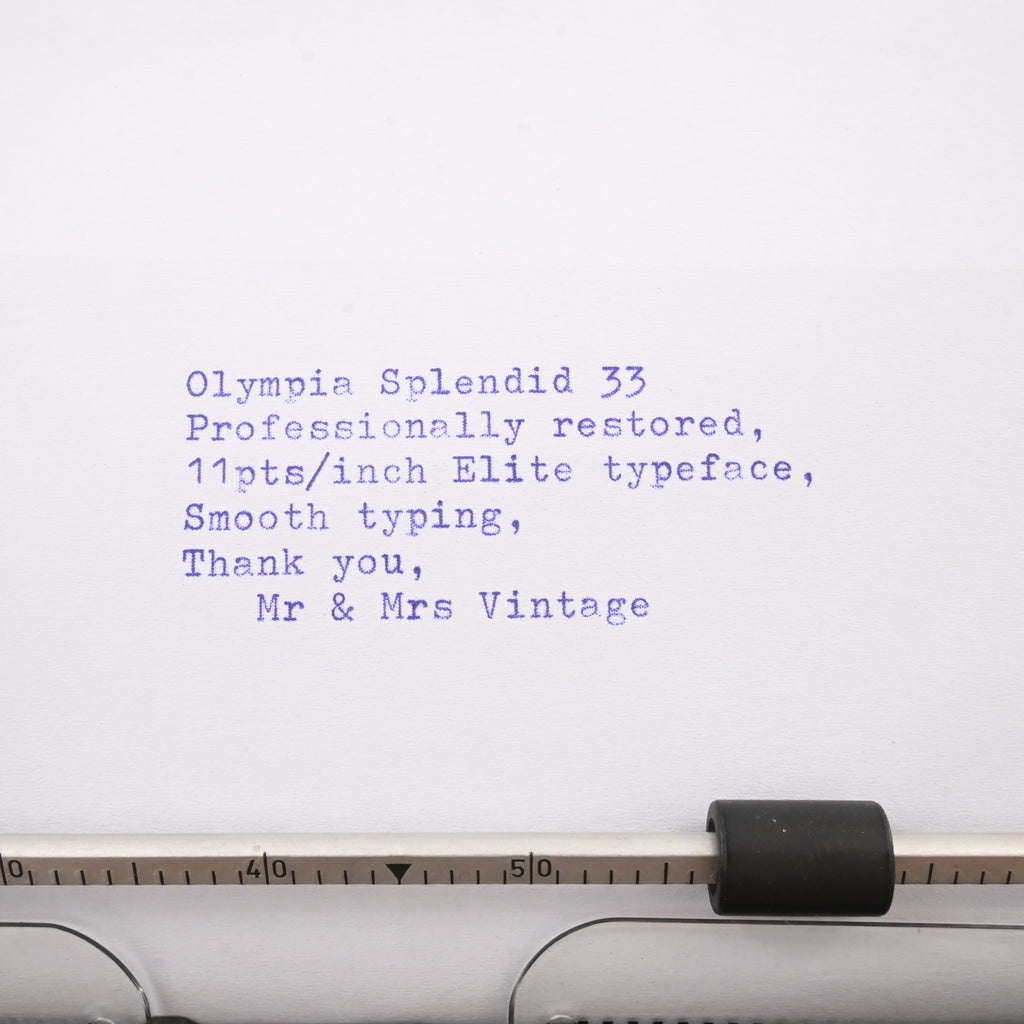 Olympia Splendid 33
Professionally restored,
11pts/inch Elite typeface,
Smooth typing,
Thank you,
Mr & Mrs Vintage
0 40 50